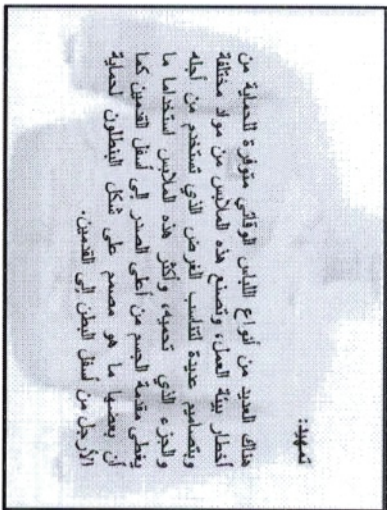 تمهيد:
هناك العديد من أنواع اللباس الوقائي متوفرة للحماية من
أخطار بيئة العمل، وتصنع هذه الملابس من مواد مختلفة
وبتصاميم عديدة لتناسب الغرض الذي تستخدم من أجله
والجزء الذي تحميه، وأكثر هذه الملابس استخداما ما
يغطي مقدمة الجسم من أعلى الصدر إلى أسفل القدمين كما
أن بعضها ما هو مصمم على شكل البنطلون لحماية
الأرجل من أسفل البطن إلى القدمين.